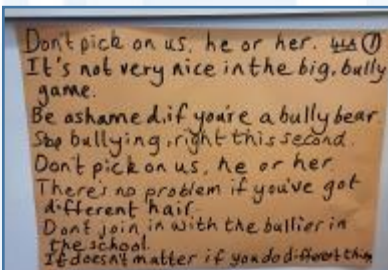 Don't pick on us, he or her. 4LA ①
It's not very nice in the big, bully
game.
Be ashamed, if you're a bully bear.
Stop bullying, right this second.
Don't pick on us, he or her
There's no problem if you've got
different hair.
Dont join in with the bullier in
the school.
It doesn't matter if you do different thin